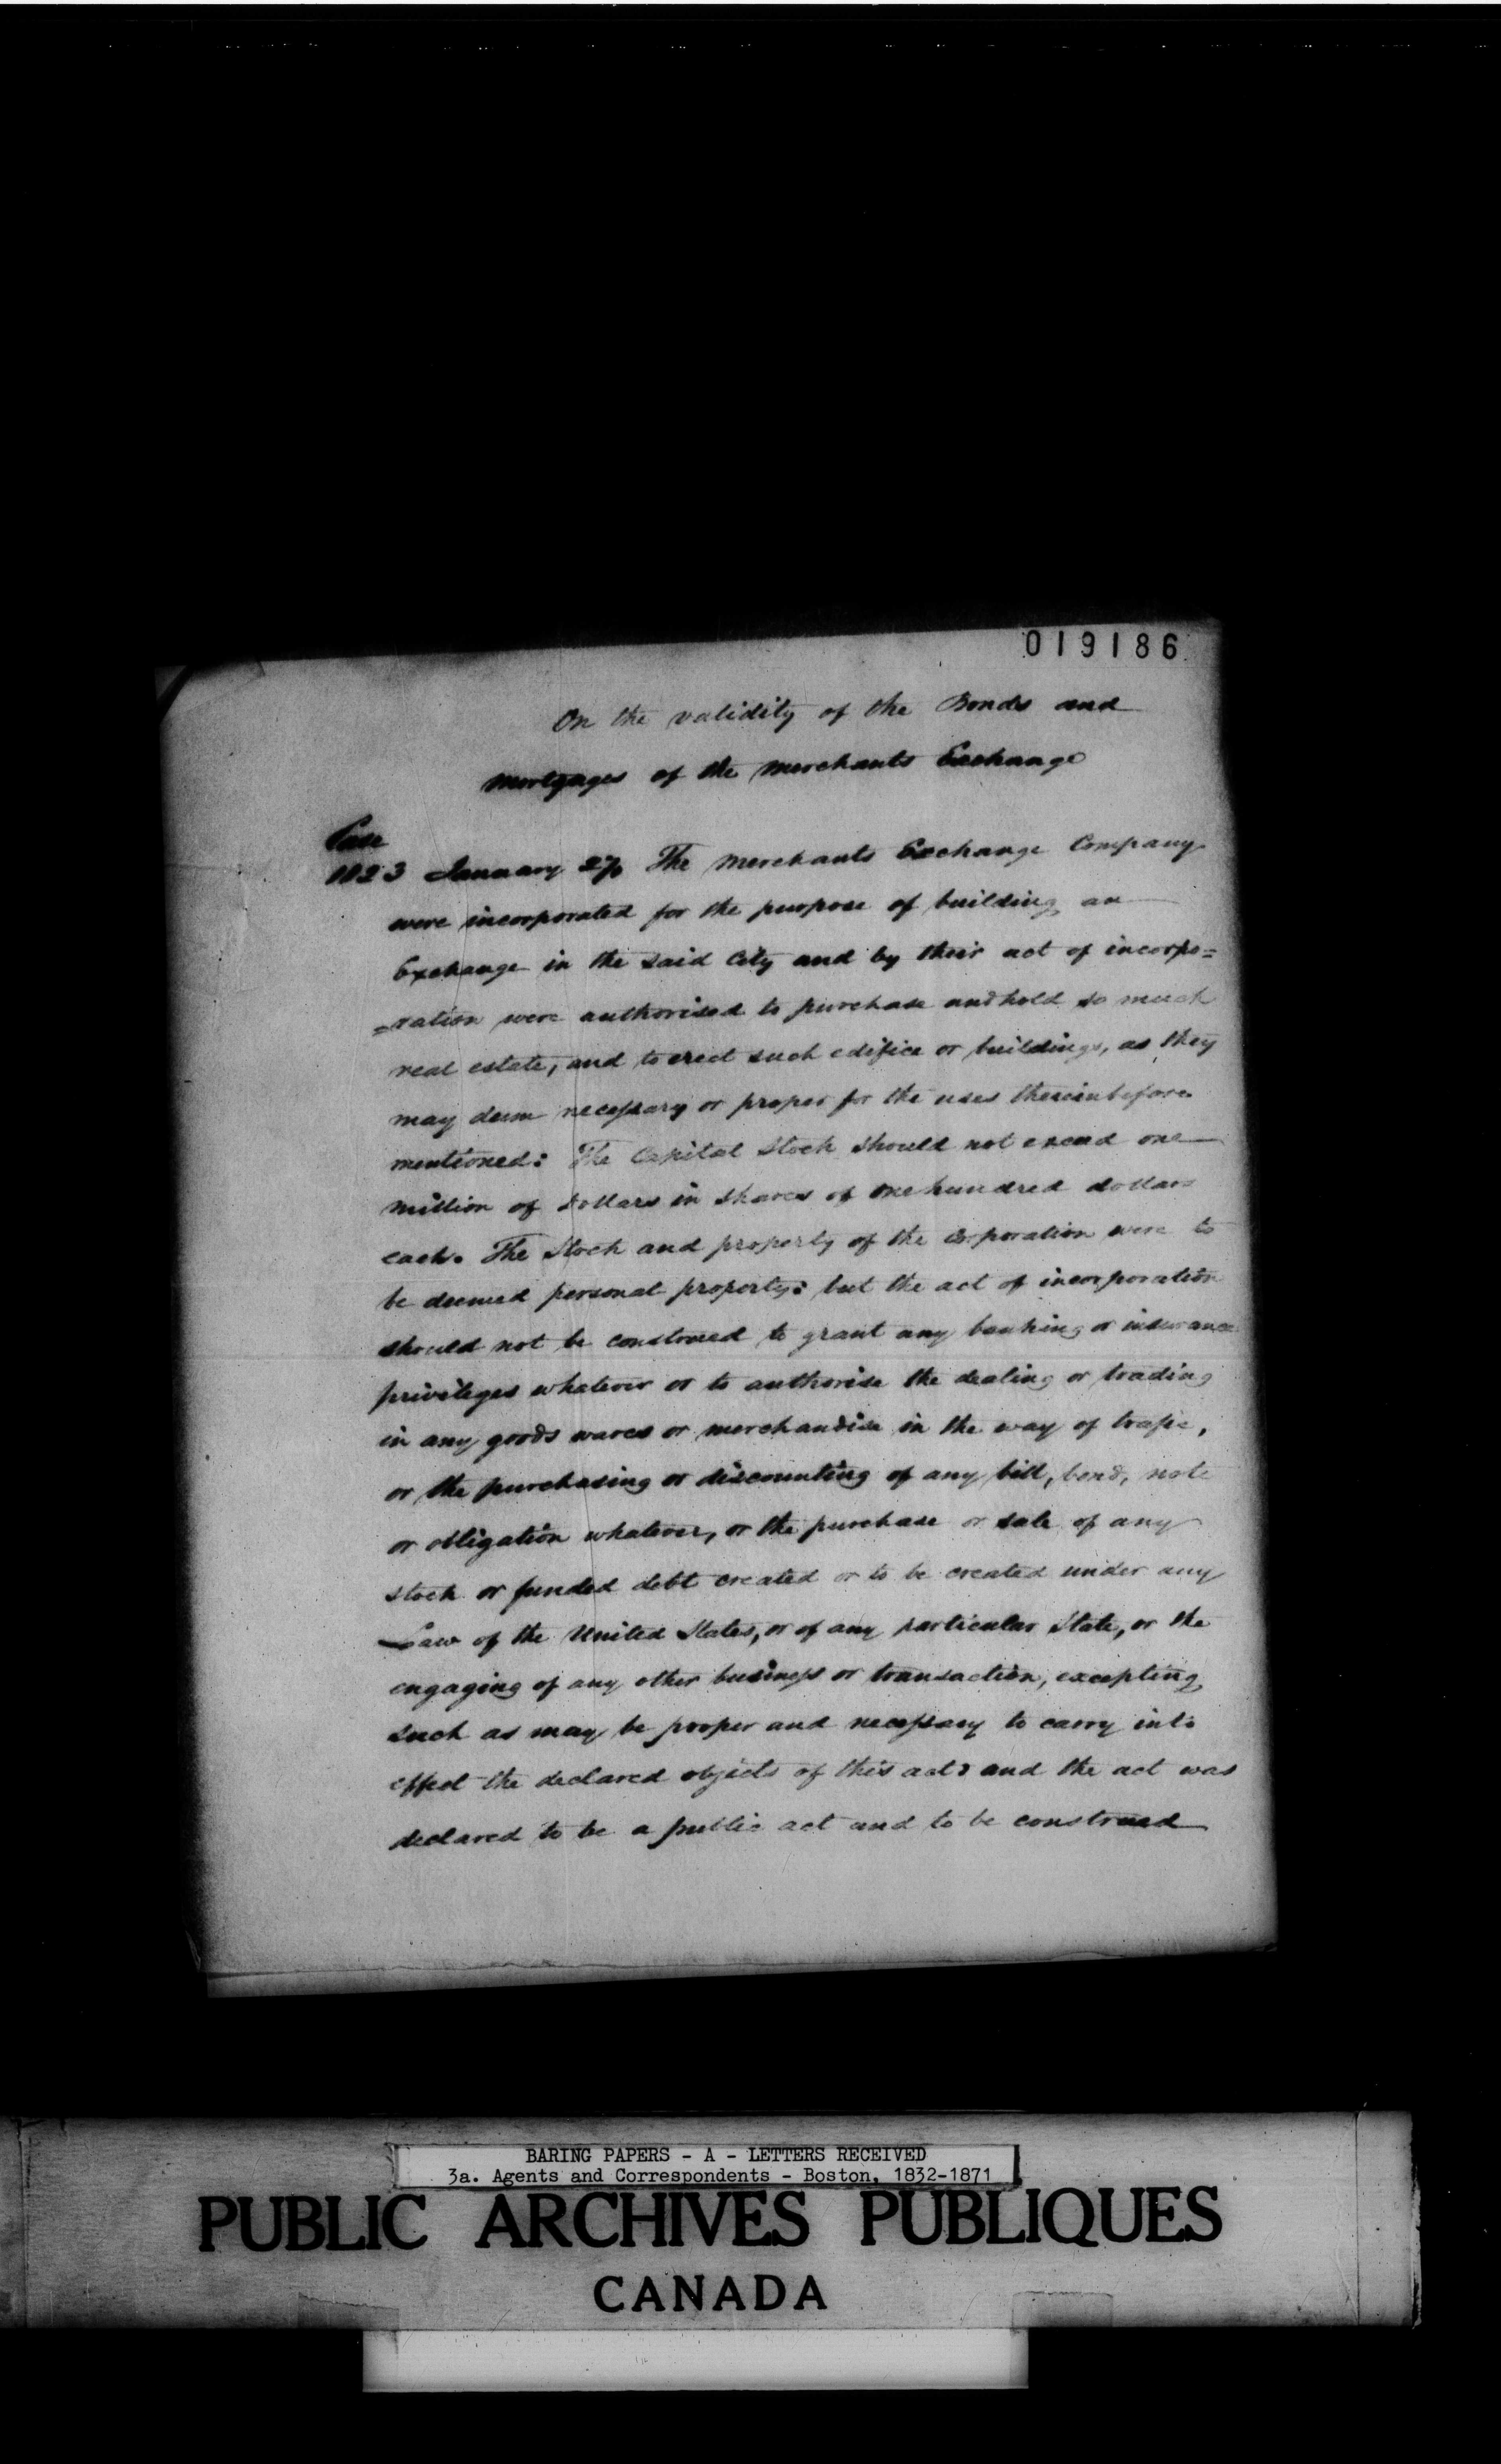 019186
On the validity of the Bonds and
Mortgages of the Merchants Exchange
Case
1823 January 27 The Merchants Exchange Company
were incorporated for the purpose of building an
Exchange in the said City and by their act of incorpo=
=ration were authorised to purchase and hold so much
real estate, and to erect such edifice or buildings, as they
may deem necessary or proper for the uses thereinbefore
mentioned: The Capital Stock should not exceed one
million of Dollars in shares of one hundred dollars
each. The Stock and property of the Corporation were to
be deemed personal property: but the act of incorporation
should not be construed to grant any banking or insurance
privileges whatever or to authorise the dealing or trading
in any goods wares or merchandise in the way of trafic,
or the purchasing or discounting of any bill, bond, note
or obligation whatever, or the purchase or sale of any
stock or funded debt created or to be created under any
Law of the United States, or of any particular State, or the
engaging of any other business or transaction, excepting
such as may be proper and necessary to carry into
effect the declared objects of this act: and the act was
declared to be a public act and to be construed
BARING PAPERS - A - LETTERS RECEIVED
3a. Agents and Correspondents - Boston, 1832-1871
PUBLIC ARCHIVES PUBLIQUES
CANADA